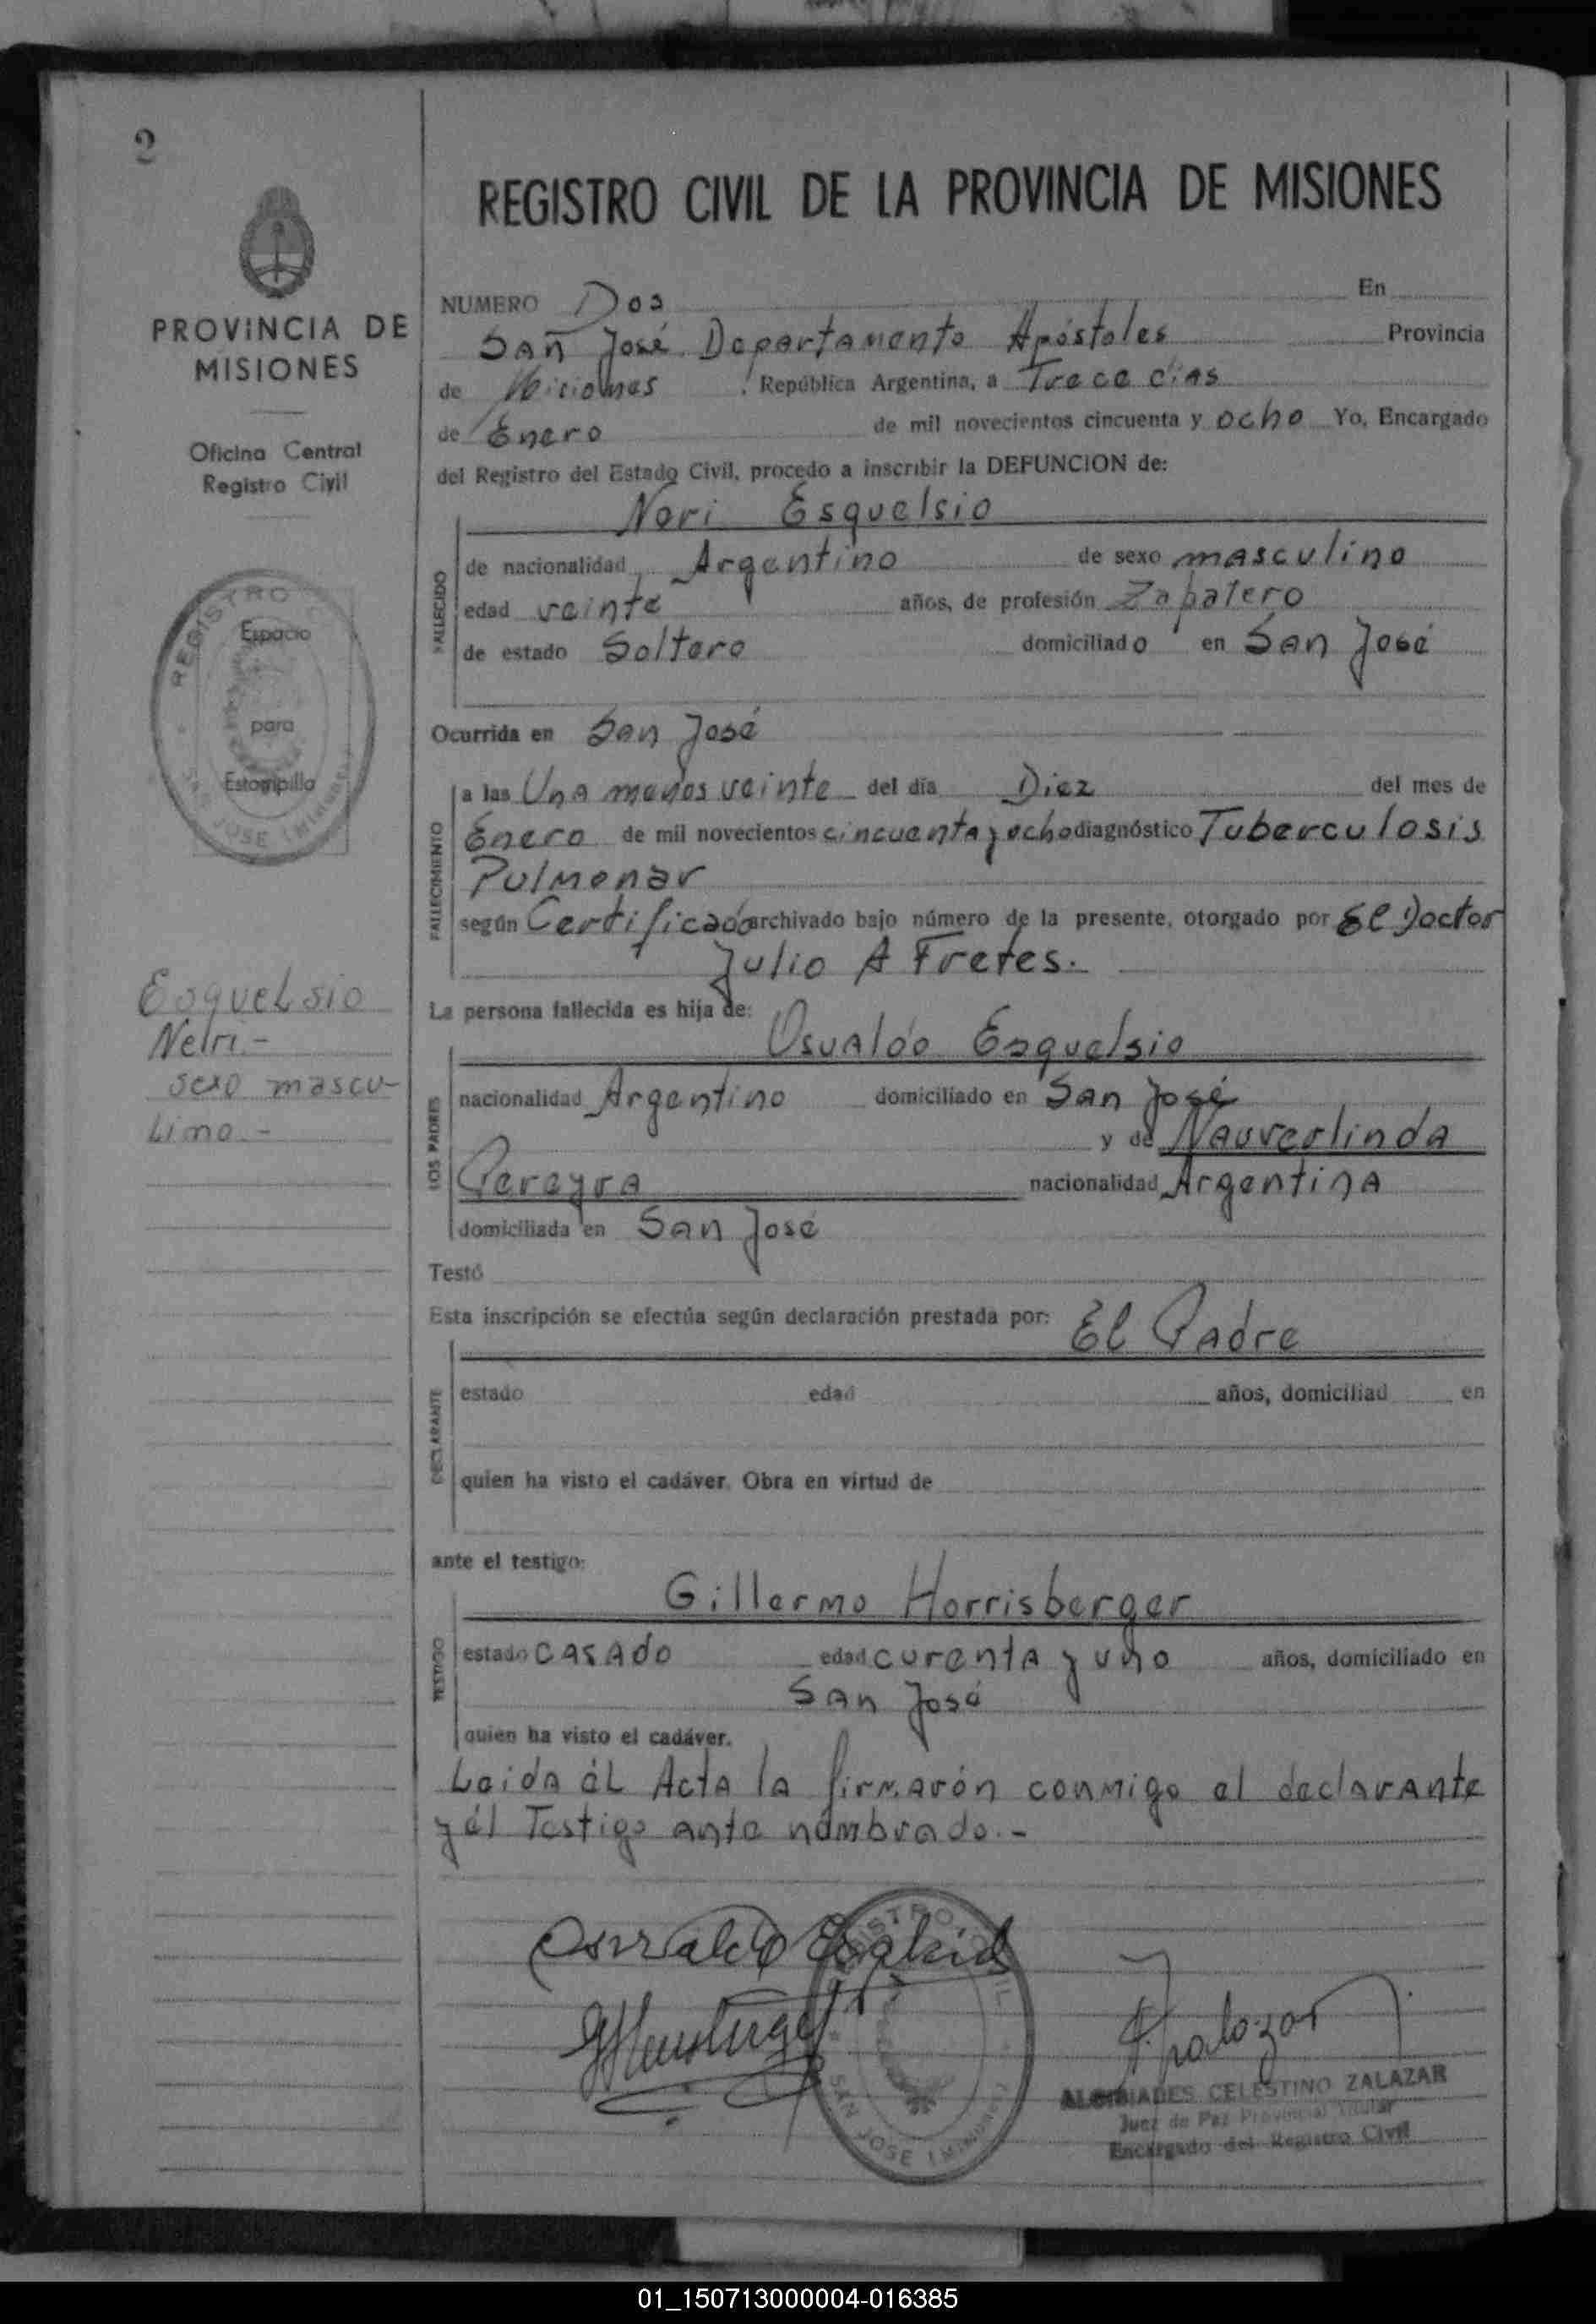 2
PROVINCIA DE
MISIONES
Oficina Central
Registro Civil
REGISTRO
Espacio
para
Estampilla
SAN JOSE (Misiones)
Esquelsio
Nelri.-
sexo mascu-
Lino.-
REGISTRO CIVIL DE LA PROVINCIA DE MISIONES
NUMERO Dos En
San José Departamento Apóstoles Provincia
de Misiones, República Argentina, a Trece días
de Enero de mil novecientos cincuenta y ocho Yo, Encargado
del Registro del Estado Civil, procedo a inscribir la DEFUNCION de:
Neri Esquelsio
FALLECIDO
de nacionalidad Argentino de sexo masculino
edad veinte años, de profesión Zapatero
de estado Soltero domiciliado en San José
Ocurrida en San José
FALLECIMIENTO
a las Una menos veinte del día Diez del mes de
Enero de mil novecientos cincuenta y ocho diagnóstico Tuberculosis
Pulmonar
según Certificado archivado bajo número de la presente, otorgado por El Doctor
Julio A Fretes.
La persona fallecida es hija de:
Osualdo Esquelsio
LOS PADRES
nacionalidad Argentino domiciliado en San José
y de Nauverlinda
Pereyra nacionalidad Argentina
domiciliada en San José
Testó
Esta inscripción se efectúa según declaración prestada por: El Padre
DECLARANTE
estado edad años, domiciliad en
quien ha visto el cadáver. Obra en virtud de
ante el testigo:
Gillermo Horrisberger
TESTIGO
estado CASADO edad curenta y uno años, domiciliado en
San José
quien ha visto el cadáver.
Leida él Acta la firmarón conmigo el declarante
y él Testigo ante nombrado.-
Osvaldo
REGISTRO CIVIL
SAN JOSE (Misiones)
Zalazar
ALCIBIADES CELESTINO ZALAZAR
Juez de Paz Provincial Titular
Encargado del Registro Civil
01_150713000004-016385